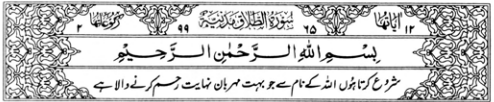 اٰیاتها ١٢ ٦٥ سُوْرَةُ الطَّلَاقِ مَدَنِیَّةٌ ٩٩ رکوعاتها ٢
بِسْمِ اللّٰهِ الرَّحْمٰنِ الرَّحِیْمِ
شروع کرتا ہوں اللہ کے نام سے جو بہت مہربان نہایت رحم کرنے والا ہے